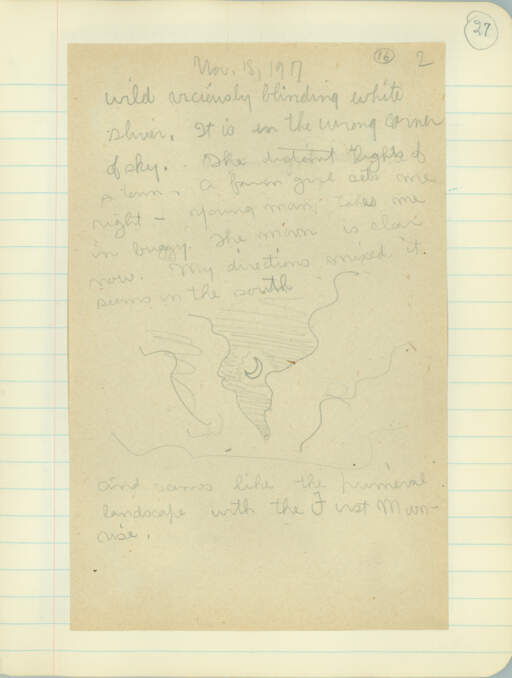 27
16 2
Nov. 18, 1917
wild viciously blinding white
sliver. It is in the wrong corner
of sky. The distant lights of
a town. A farm girl sets me
right - young man takes me
in buggy. The moon is clear
now. My directions mixed it
seems in the south
and seems like the primeval
landscape with the First Moon-
rise.